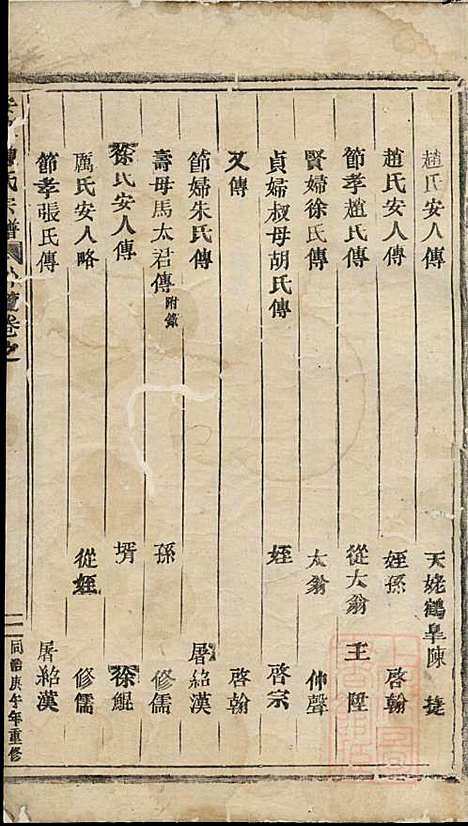 趙氏安人傳 天姥鶴皐陳 捷
趙氏安人傳 姪孫 啓翰
節孝趙氏傳 從大翁 王 陞
賢婦徐氏傳 太翁 仲聲
貞婦叔母胡氏傳 姪 啓宗
又傳 啓翰
節婦朱氏傳 屠紹漢
壽母馬太君傳 附錄 孫 修儒
徐氏安人傳 壻 徐鯤
厲氏安人略 從姪 修儒
節孝張氏傳 屠紹漢
氏宗譜 卷之
同治庚午年重修